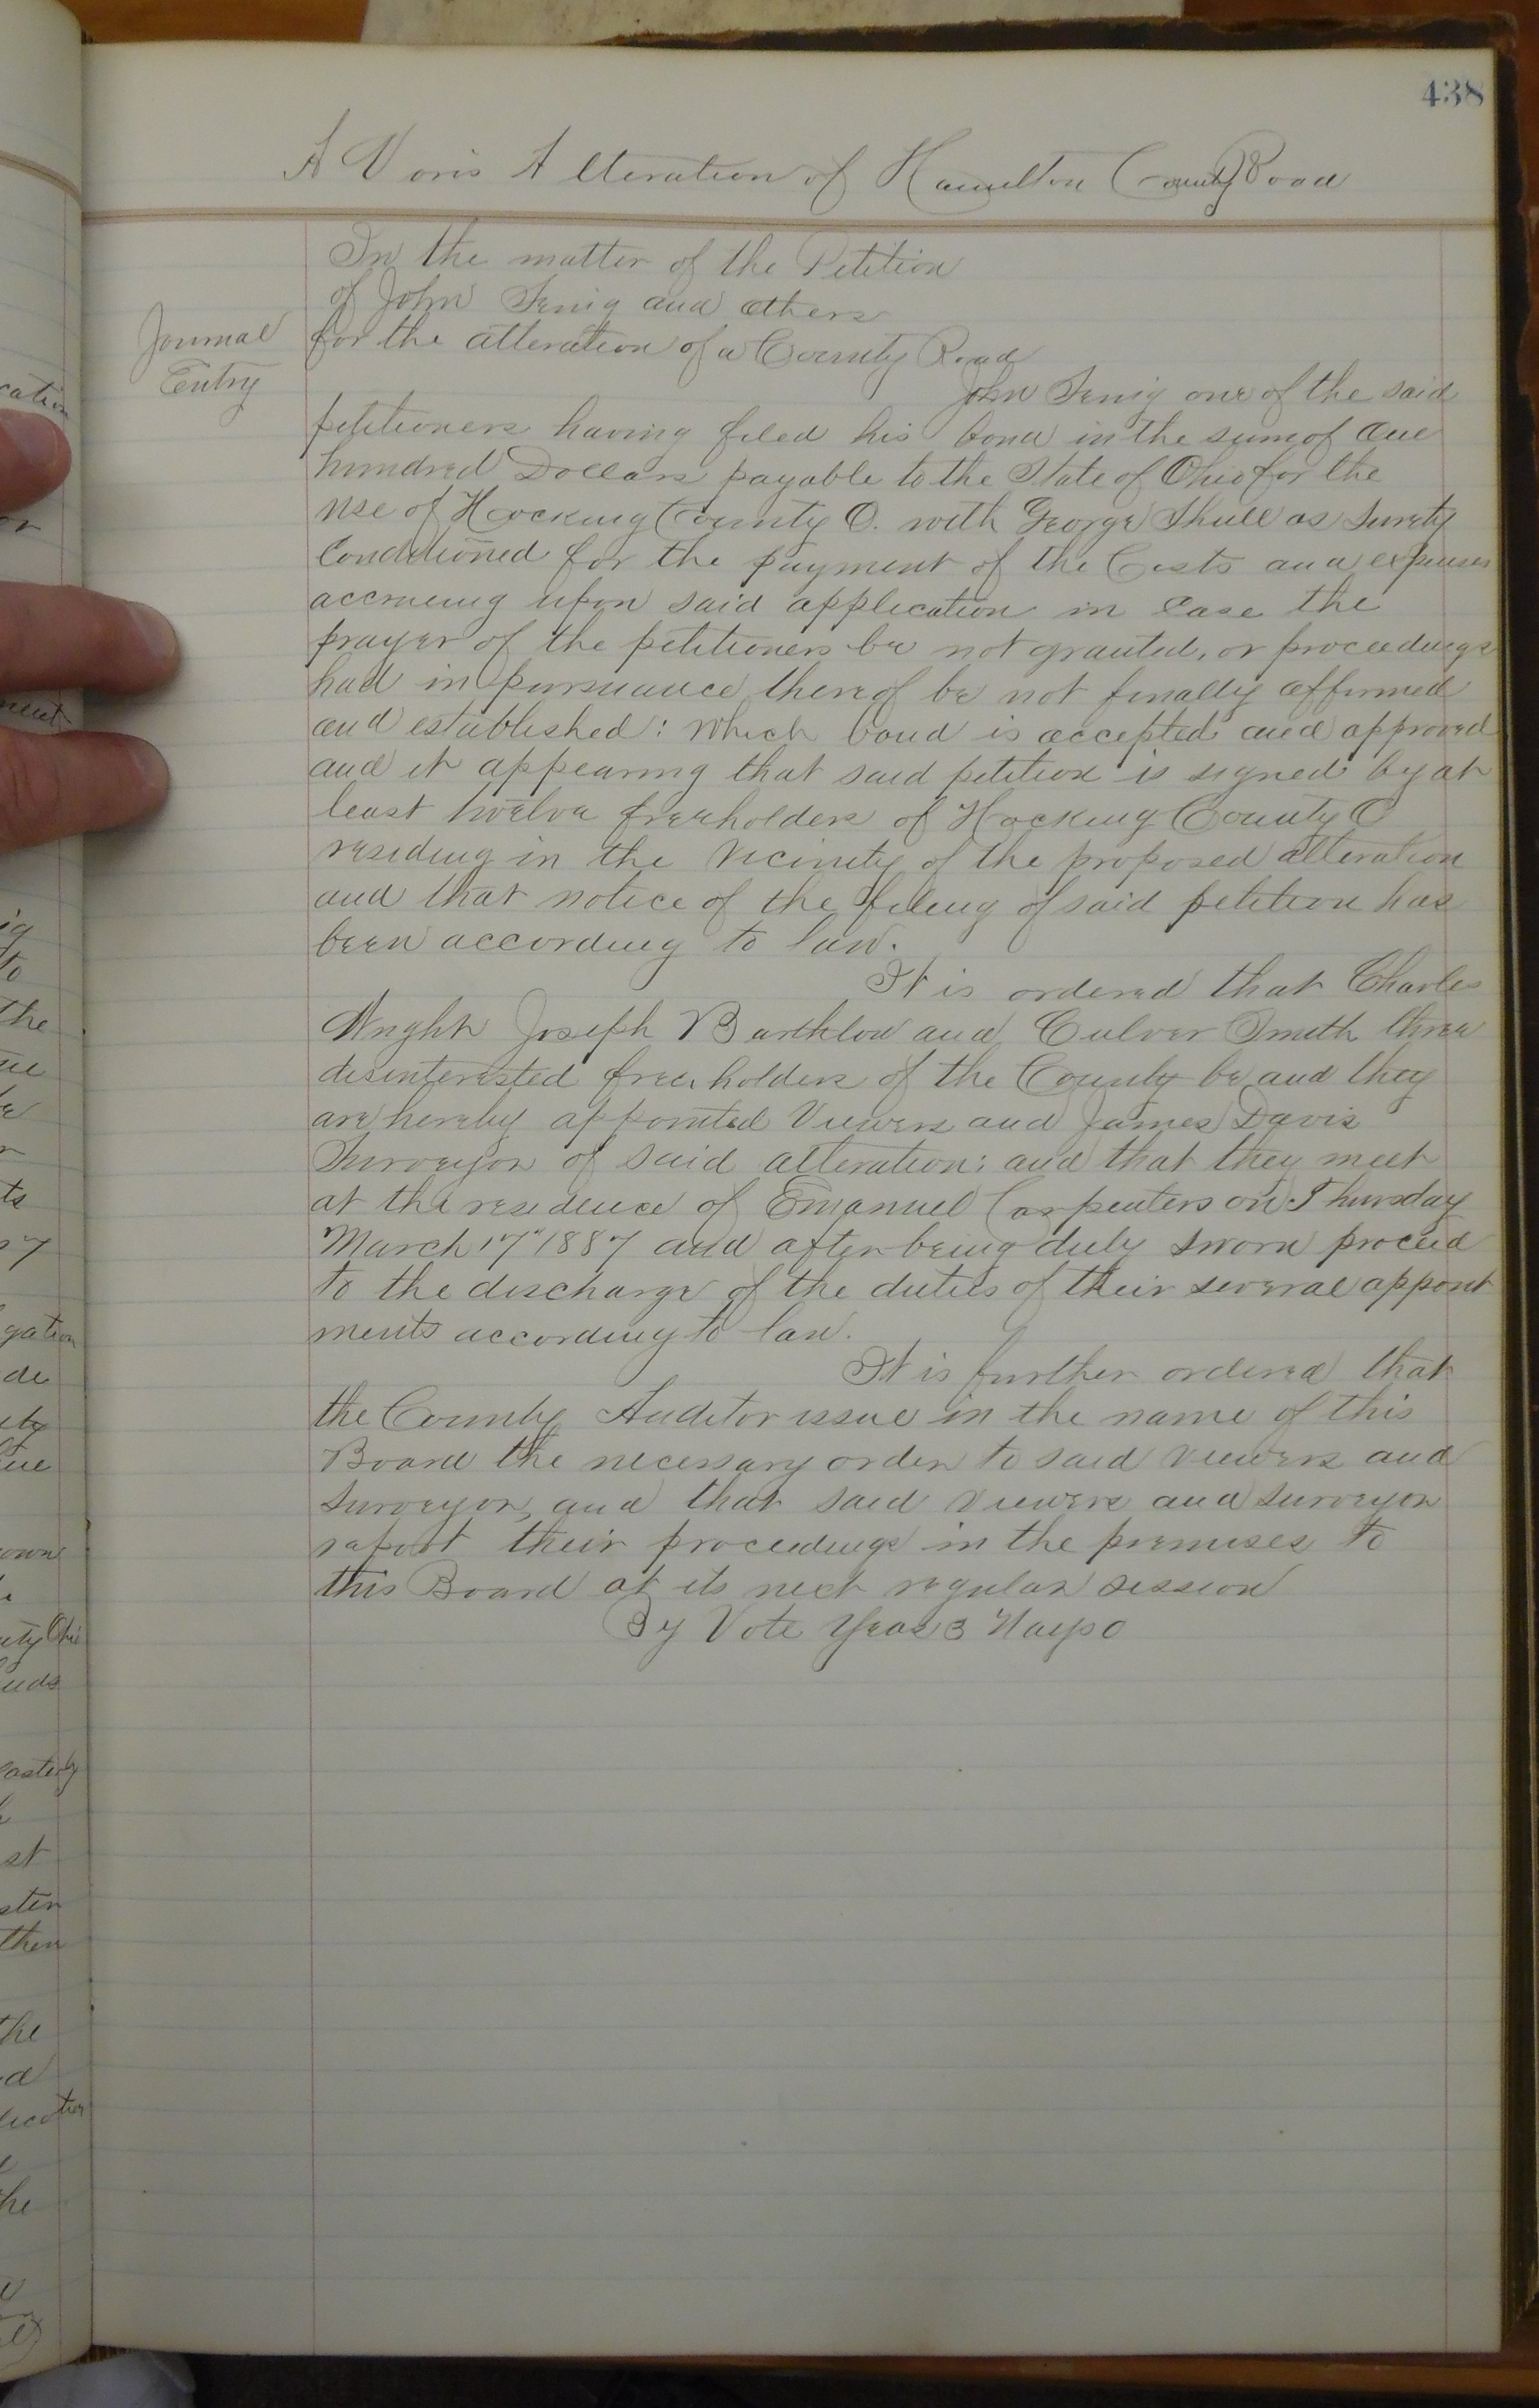 438
A Voris Alteration of Hamilton County Road
In the matter of the Petition
of John Senig and others
for the alteration of a County Road
Journal
Entry
John Senig one of the said
petitioners having filed his bond in the sum of One
hundred Dollars payable to the State of Ohio for the
use of Hocking County O. with George Shull as Surety
Conditioned for the payment of the Costs and expenses
accrueing upon said application in Case the
prayer of the petitioners be not granted, or proceedings
had in pursuance thereof be not finally affirmed
and established: Which bond is accepted and approved
and it appearing that said petition is signed by at
least twelve freeholders of Hocking County O
residing in the Vicinity of the proposed alteration
and that notice of the fileing of said petition has
been according to law.
It is ordered that Charles
Wright Joseph Barthlow and Culver Smith three
disinterested free holders of the County be and they
are hereby appointed Viewers and James Davis
Surveyor of said alteration; and that they meet
at the residence of Emanuel Carpenters on Thursday
March 17" 1887 and after being duly sworn proceed
to the discharge of the duties of their several appoint
ments according to law.
It is further ordered that
the County Auditor issue in the name of this
Board the necessary order to said viewers and
Surveyor, and that said viewers and surveyor
report their proceedings in the premises to
this Board at its next regular session
By Vote Yeas 3 Nays 0
cation
or
ment
ig
to
the
ts
17
gation
de
own
uty Ohio
uds
easterly
st
then
the
he